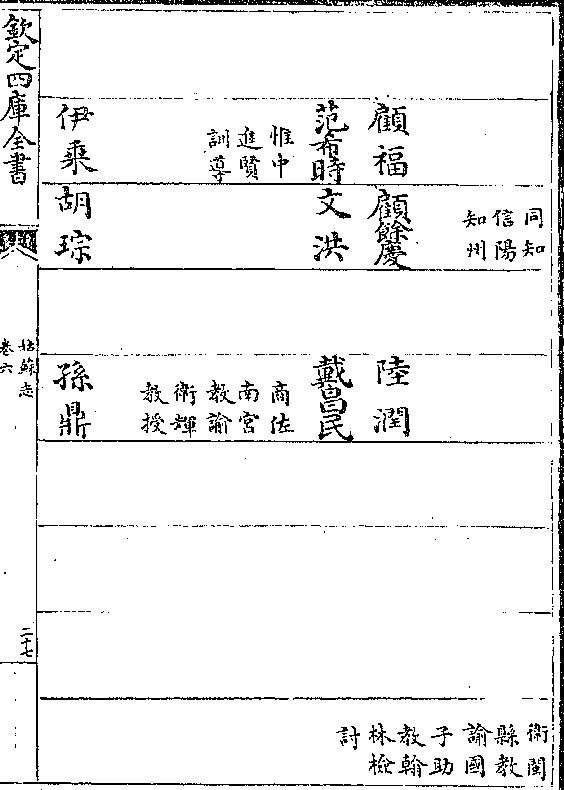 欽定四庫全書
姑蘇志
卷六
二十七
顧福
范希時
惟中
進賢
訓導
伊乘
同知
信陽
知州
顧餘慶
文洪
胡琮
陸潤
戴昌民
商佐
南宮
教諭
衛輝
教授
孫鼎
衛閩
縣教
諭國
子助
教翰
林檢
討